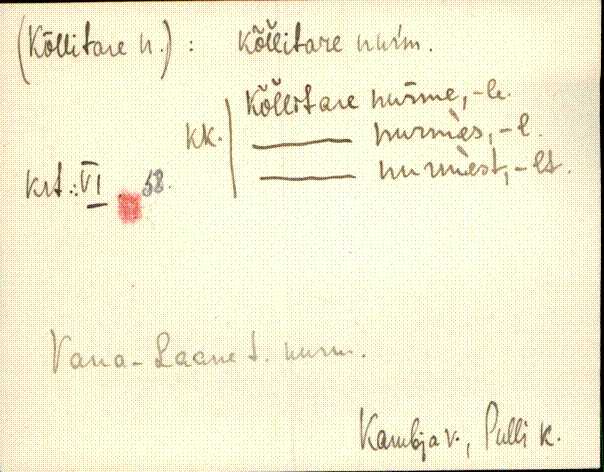 (Kõllitare n.) : kõl̆litare nurm.
kk. | kõl̆litare nurme, -le.
——— nurmès, -l.
——— nurmèst, -lt.
krt.: VI 58.
Vana-Laane t. nurm.
Kambja v., Pulli k.